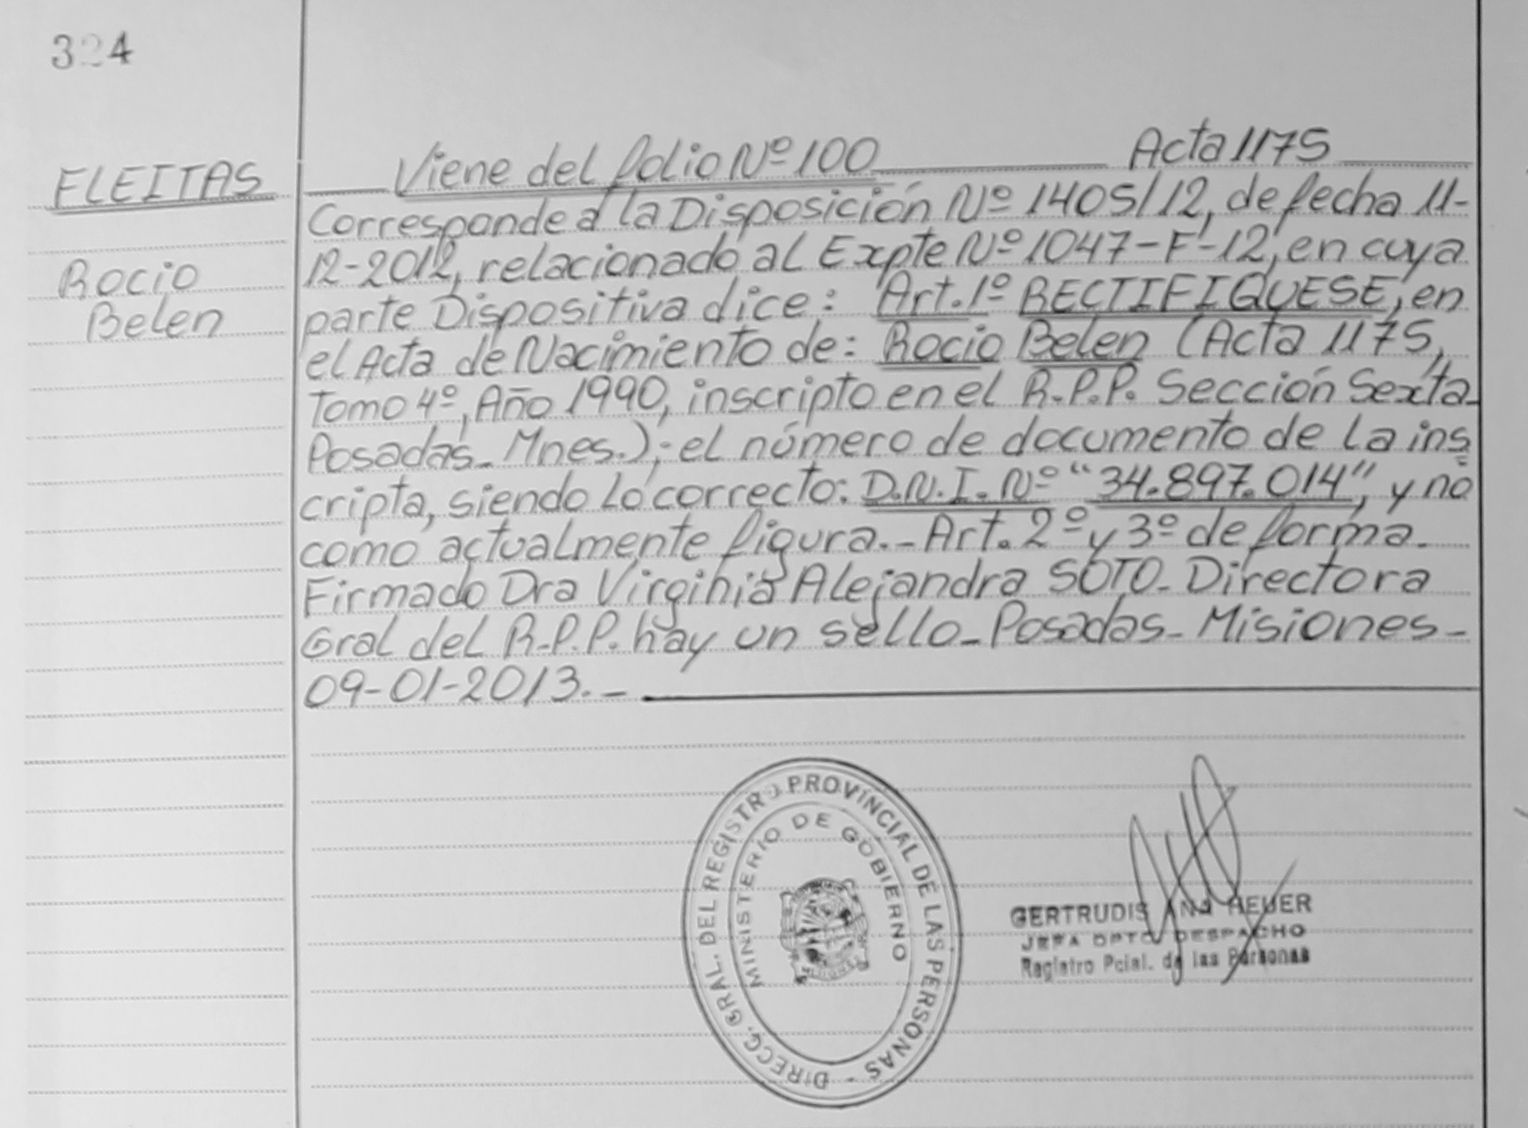 324
FLEITAS
Rocio
Belen
Viene del folio Nº 100 Acta 1175
Corresponde a la Disposición Nº 1405/12, de fecha 11-
12-2012, relacionado al Expte Nº 1047-F-12, en cuya
parte Dispositiva dice: Art. 1º RECTIFIQUESE, en
el Acta de Nacimiento de: Rocio Belen (Acta 1175,
Tomo 4º, Año 1990, inscripto en el R.P.P. Sección Sexta
Posadas- Mnes.); el número de documento de la ins
cripta, siendo lo correcto: D.N.I. Nº "34.897.014", y no
como actualmente figura.- Art. 2º y 3º de forma.
Firmado Dra Virginia Alejandra SOTO- Directora
Gral del R.P.P. hay un sello- Posadas- Misiones-
09-01-2013.-
DIRECC. GRAL. DEL REGISTRO PROVINCIAL DE LAS PERSONAS -
MINISTERIO DE GOBIERNO
GERTRUDIS ANA HEUER
JEFA DPTO DESPACHO
Registro Pcial. de las Personas